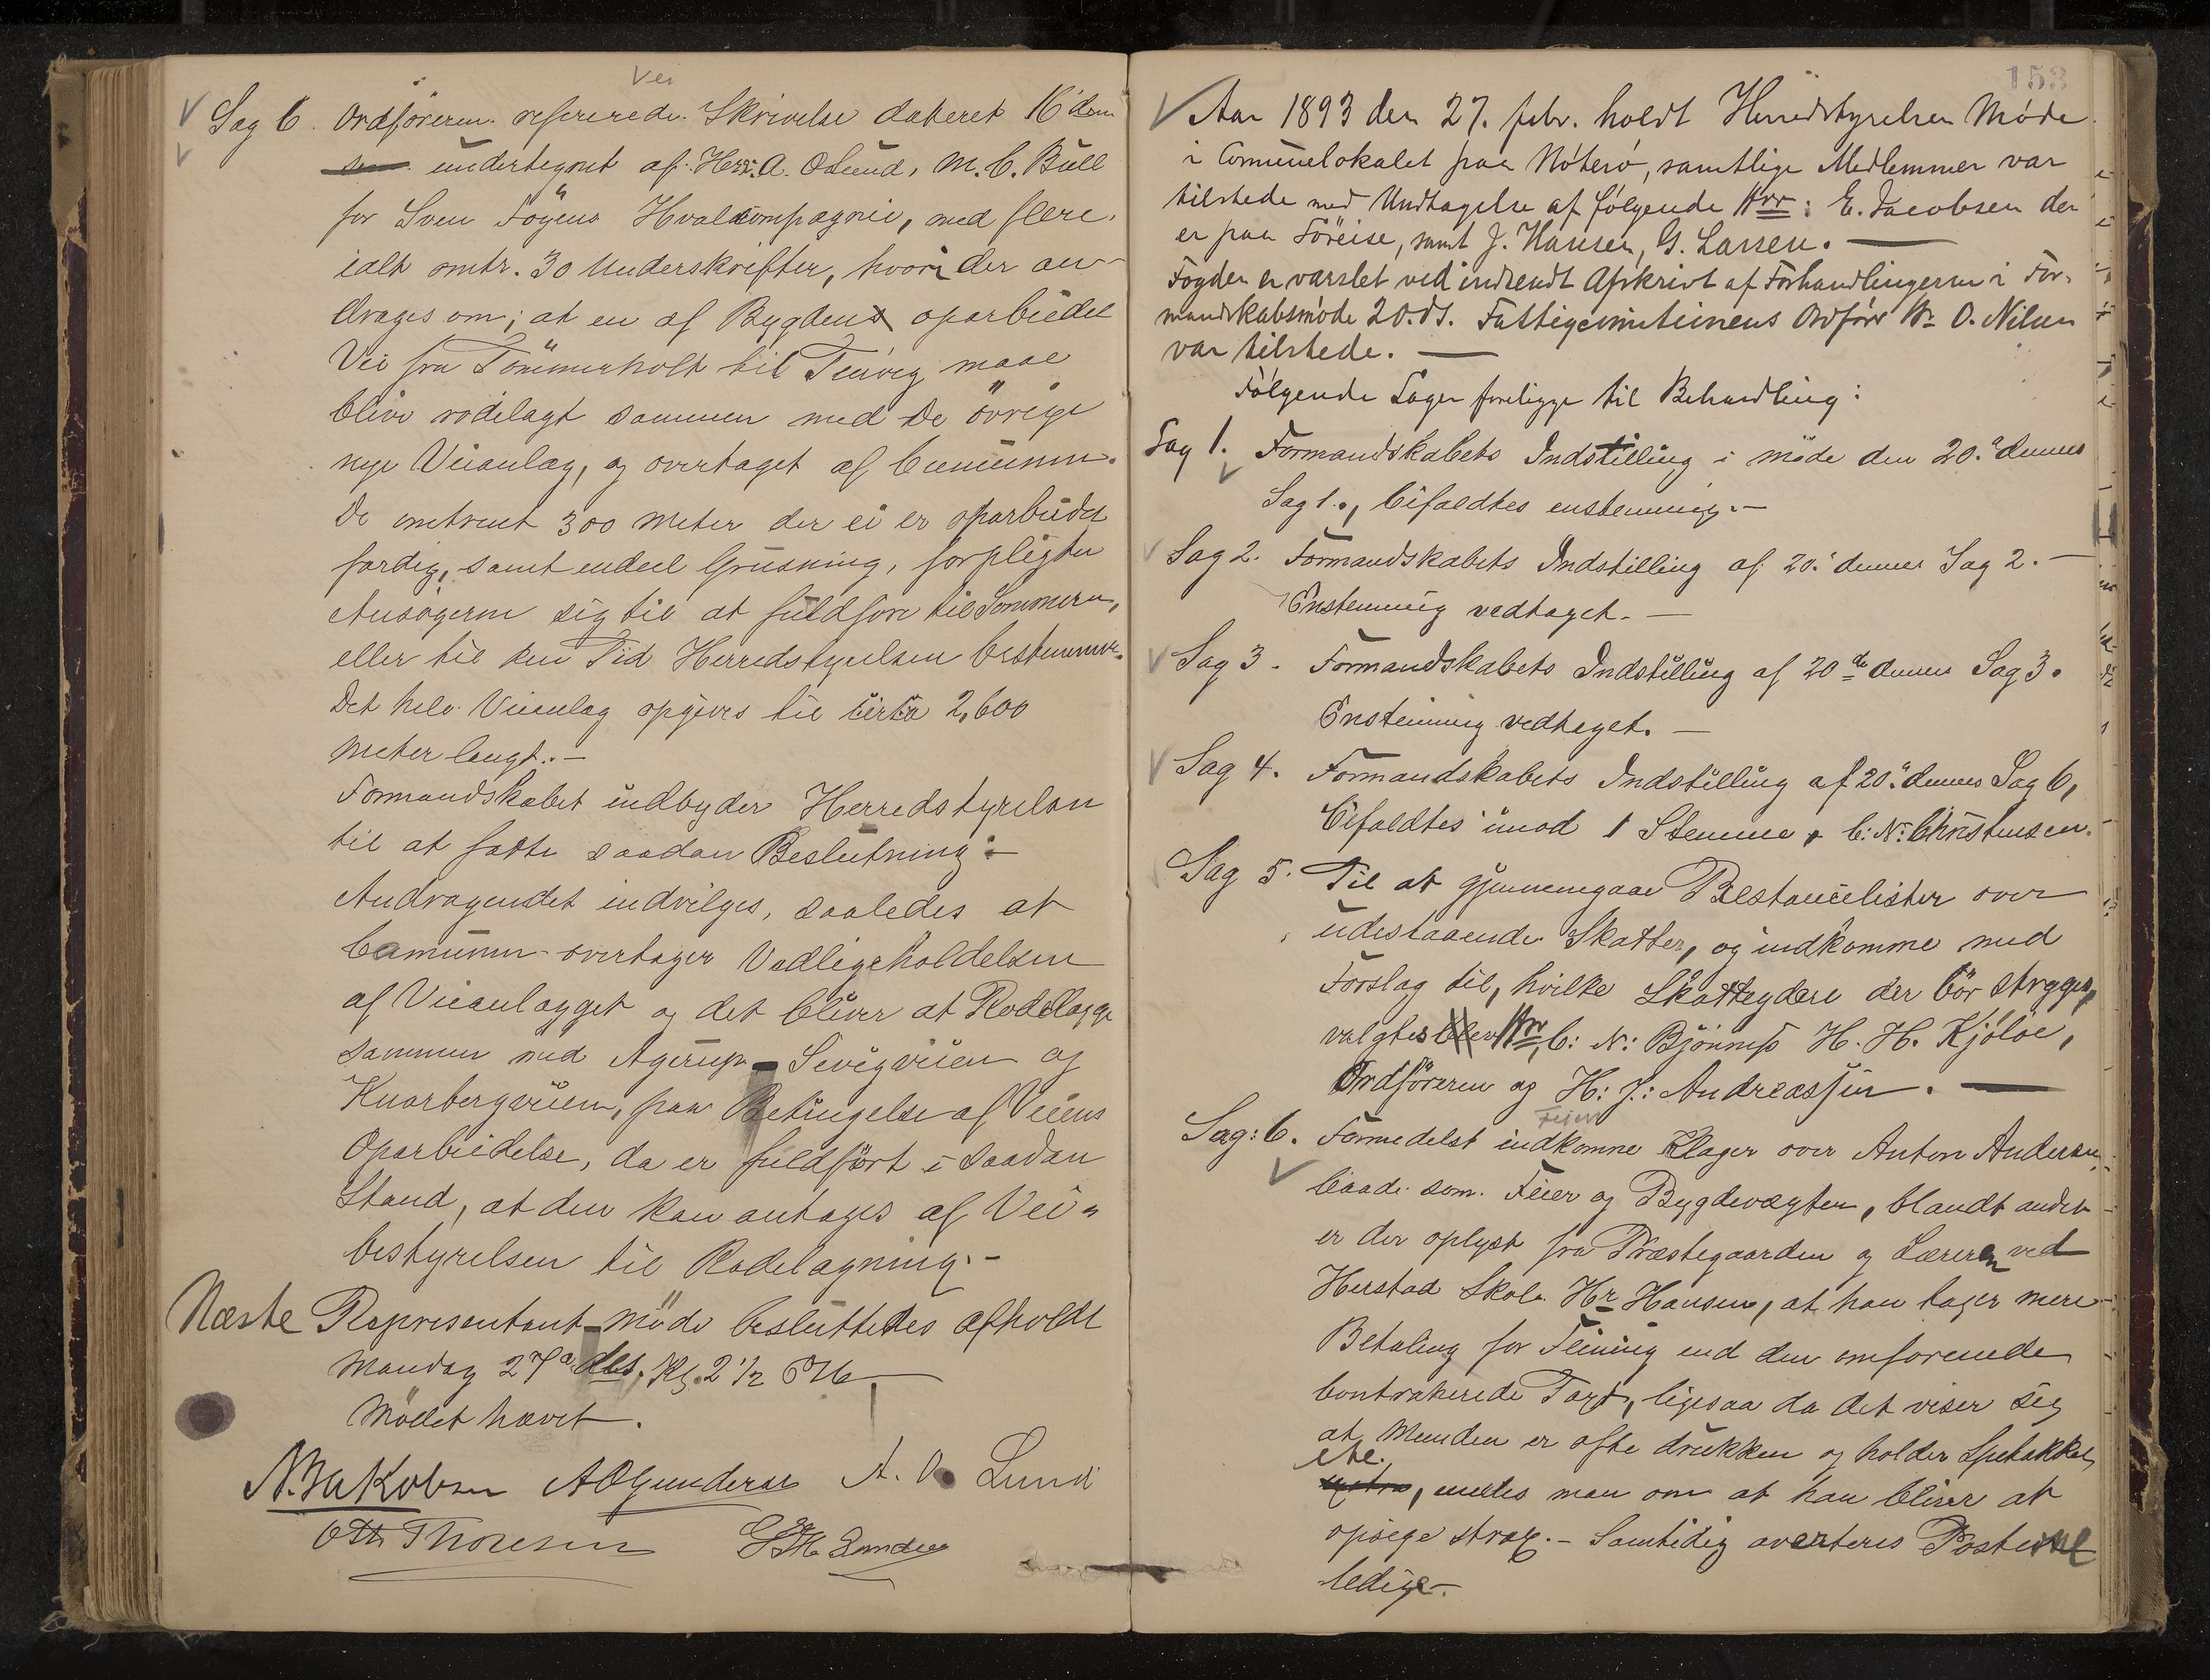 Vei
Sag 6. Ordføreren refererede Skrivelse dateret 16 dens
undertegnet af Herr. A. O. Lund, M. C. Bull
for Sven Foyens Hvalcompagnie, med flere,
ialt omtr. 30 Underskrifter, hvori der an-
drages om; at en af Bygden oparbiedet
Vei fra Tömmerholt til Teievig maae
blive rodelagt sammen med De övrige
nye Veianlæg, og overtaget af Comunen.
De omtrent 300 Meter der ei er oparbiedet
færdig, samt endeel Grusning, forpligter
Ansögerne sig til at fuldføre til Sommeren,
eller til den Tid Herredstyrelsen bestemmer.
Det hele Veianlæg opgives til cirka 2,600
Meter langt. -
Formandskabet indbyder Herredstyrelsen
til at fatte saadan Beslutning:-
Andragendet indvilges, saaledes at
Comunen overtager Vedligeholdelsen
af Veianlægget og det bliver at Rodelægge
sammen med Agerup - Sevigveien og
Knarbergveien, paa Betingelse af Veiens
Oparbeidelse, da er fuldfört i saadan
Stand, at den kan antages af Vei-
bestyrelsen til Rodelægning. -
Næste Representant-möde besluttedes afholdt
Mandag 27de ds. Kl. 2 1/2 EM
Mödet hævet.
N. Jakobsen A O Gundersen A. O. Lund
Otto Thoresen
153
Aar 1893 den 27. febr. holdt Herredstyrelsen Möde
i Comunelokalet paa Nöterö, samtlige Medlemmer var
tilstede med Undtagelse af følgende Hrr: E. Jacobsen der
er paa Söreise, samt J. Hansen, G. Larsen. —
Fogden er varslet ved indsendt Afskrivt af Forhandlingerne i For-
mandskabsmöde 20. ds. Fattigcomitionens Ordförer Hr O. Nilsen
var tilstede. —
Fölgende Sager foreligge til Behandling:
Sag 1. Formandskabets Indstilling i möde den 20. dennes
Sag 1., bifaldtes enstemmig. -
Sag 2. Formandskabets Indstilling af 20. dennes Sag 2. —
Enstemmig vedtaget. —
Sag 3. Formandskabets Indstilling af 20de dennes Sag 3.
Enstemmig vedtaget. —
Sag 4. Formandskabets Indstilling af 20. dennes Sag 6,
bifaldtes imod 1 Stemme, C: N: Christensen.
Sag 5. Til at gjennemgaae Restancelister over
udestaaende Skatter, og indkomme med
Forslag til, hvilke Skatteydere der bör stryges,
valgtes blev Hrr, C: N: Bjönnes H. H. Kjölöe,
Ordföreren og H: J: Andreassen. —
Feier
Sag: 6. Formedelst indkomne Klager over Anton Andersen,
baade som Feier og Bygdevægter, blandt andet
er der oplyst fra Præstegaarden og Læreren ved
Herstad Skole Hr Hansen, at han tager mere
Betaling for Feining end den omforenede
contrakerede Taxt, ligesaa da det viser sig
at Manden er ofte drukken og holder Spetakkel
etc.
, enedes man om at han bliver at
opsige strax. - Samtidig averteres Posterne
ledige. -